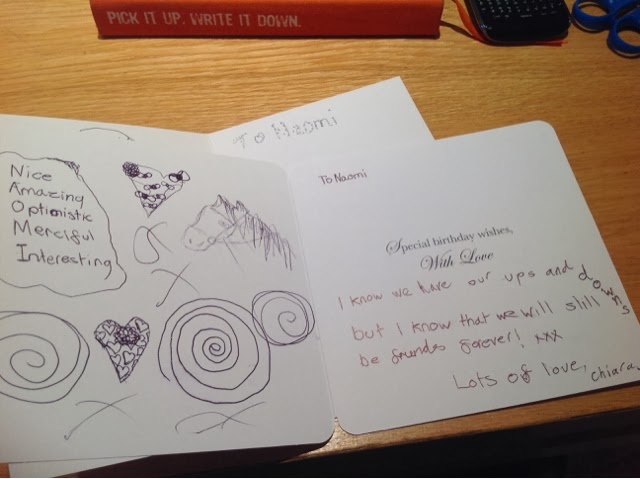 PICK IT UP. WRITE IT DOWN.
To Naomi
Nice
Amazing
Optimistic
Merciful
Interesting
To Naomi
Special birthday wishes,
With Love
I know we have our ups and downs
but I know that we will still
be friends forever! xxx
Lots of love, Chiara